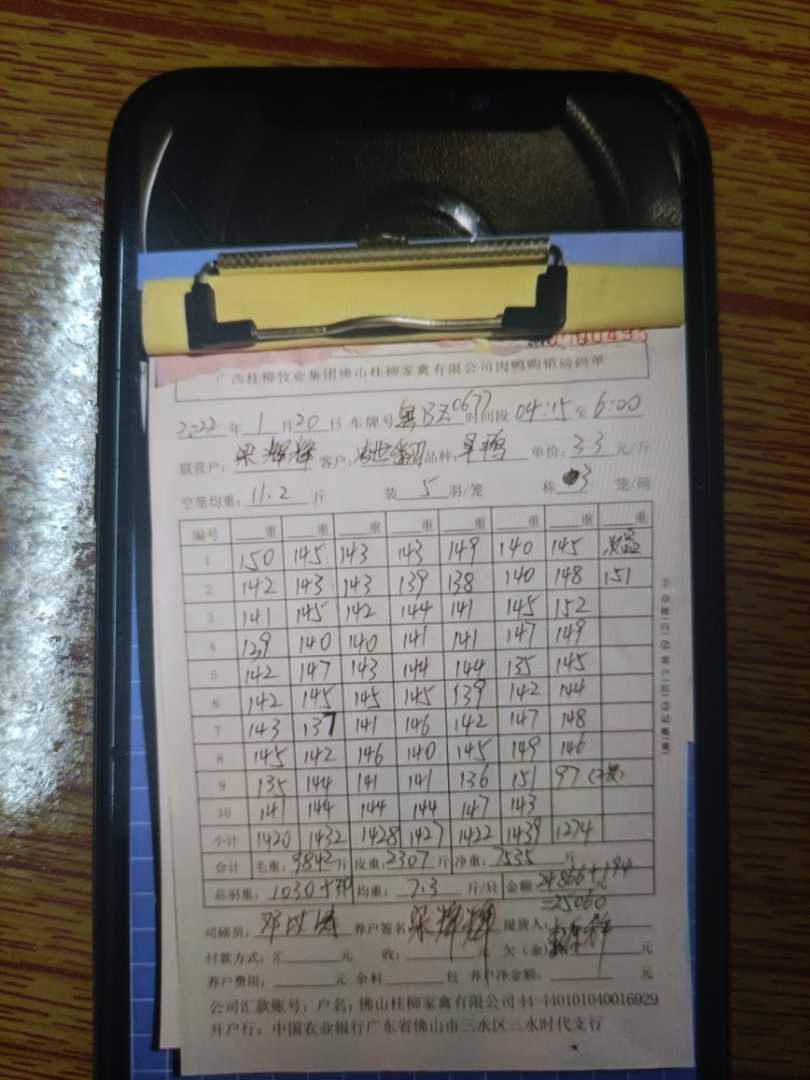 0700495
广西桂柳牧业集团佛山桂柳家禽有限公司肉鸭购销磅码单
2022 年 1 月 20 日 车牌号 粤BZ0677 时间段 04:15 至 6:00
联营户: 梁辉辉 客户: 品种: 旱鸭 单价: 3.3 元/斤
空笼均重: 11.2 斤 装 5 羽/笼 称 3 笼/磅
编号 重 重 重 重 重 重 重 重
1 150 145 143 143 149 140 145
2 142 143 143 139 138 140 148 151
3 141 145 142 144 141 145 152
4 139 140 140 141 141 147 149
5 142 147 143 144 144 135 145
6 142 145 145 145 139 142 144
7 143 137 141 146 142 147 148
8 145 142 146 140 145 149 146
9 135 144 141 141 136 151 97
10 141 144 144 144 147 143
小计 1420 1432 1428 1427 1422 1439 1274
合计 毛重: 9842 斤 皮重: 2307 斤 净重: 7535 斤
总羽重: 1030 均重: 7.3 斤/只 金额 24866+194
=25060
司磅员: 养户签名 梁辉辉 提货人:
付款方式: 汇 元 收: 元 欠(余) 元
养户费用: 元 余料 包 养户净金额: 元
公司汇款账号: 户名: 佛山桂柳家禽有限公司 44-440101040016929
开户行: 中国农业银行广东省佛山市三水区三水时代支行